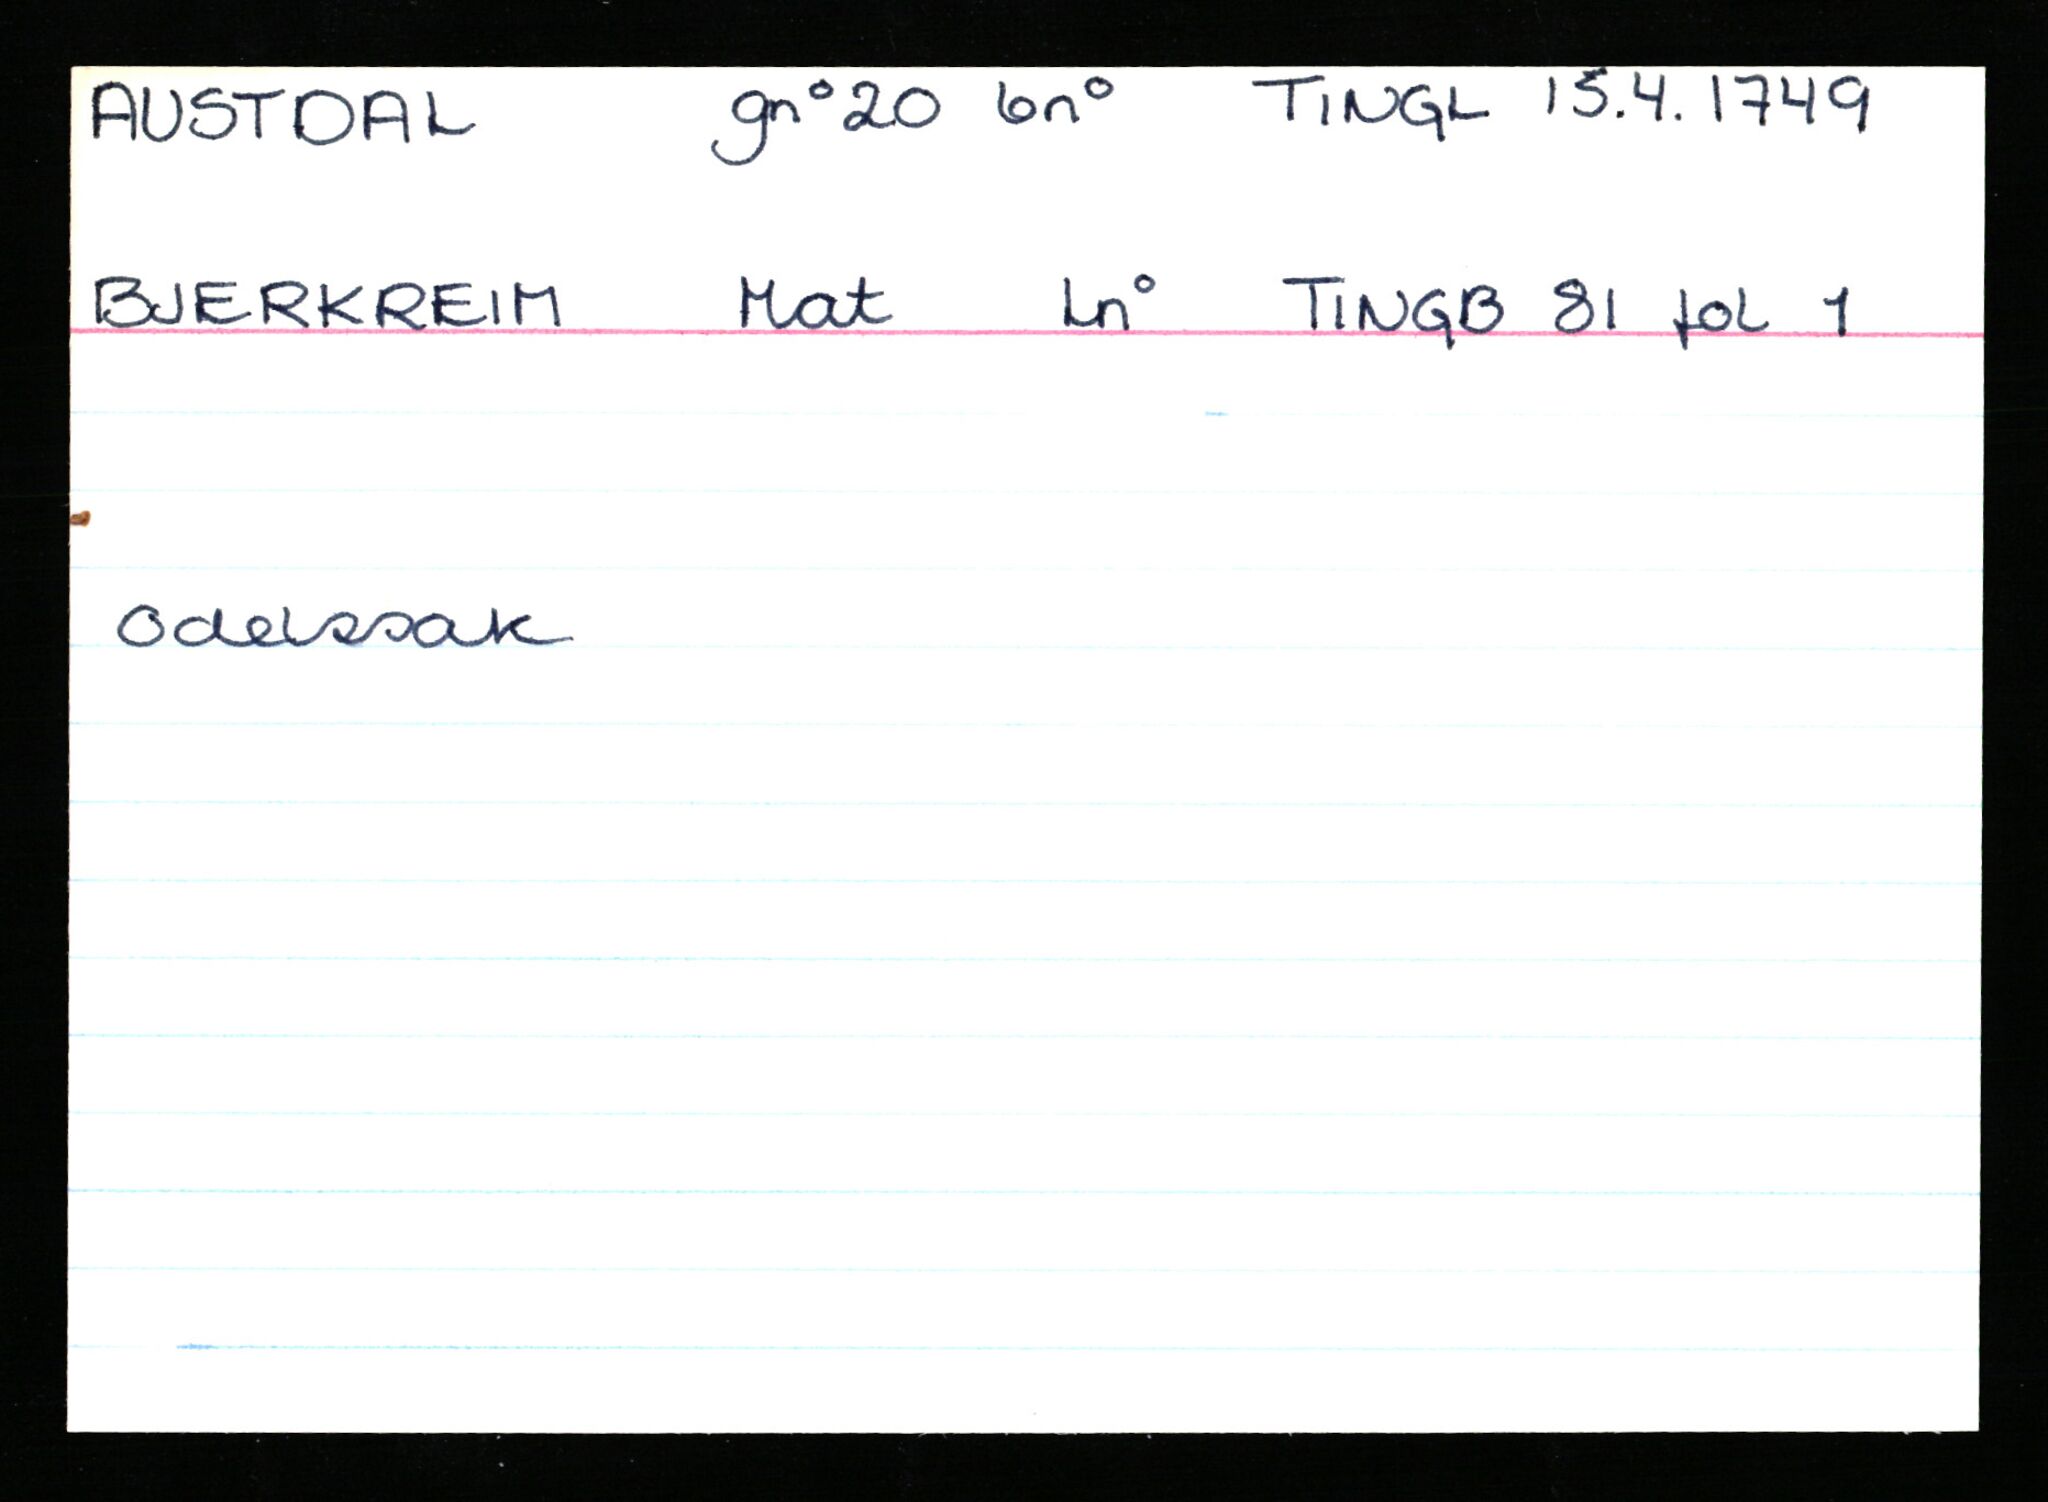 AUSTDAL gn° 20 bn° TINGL 15.4.1749
BJERKREIM Mat Ln° TINGB 81 fol 1
Odelssak